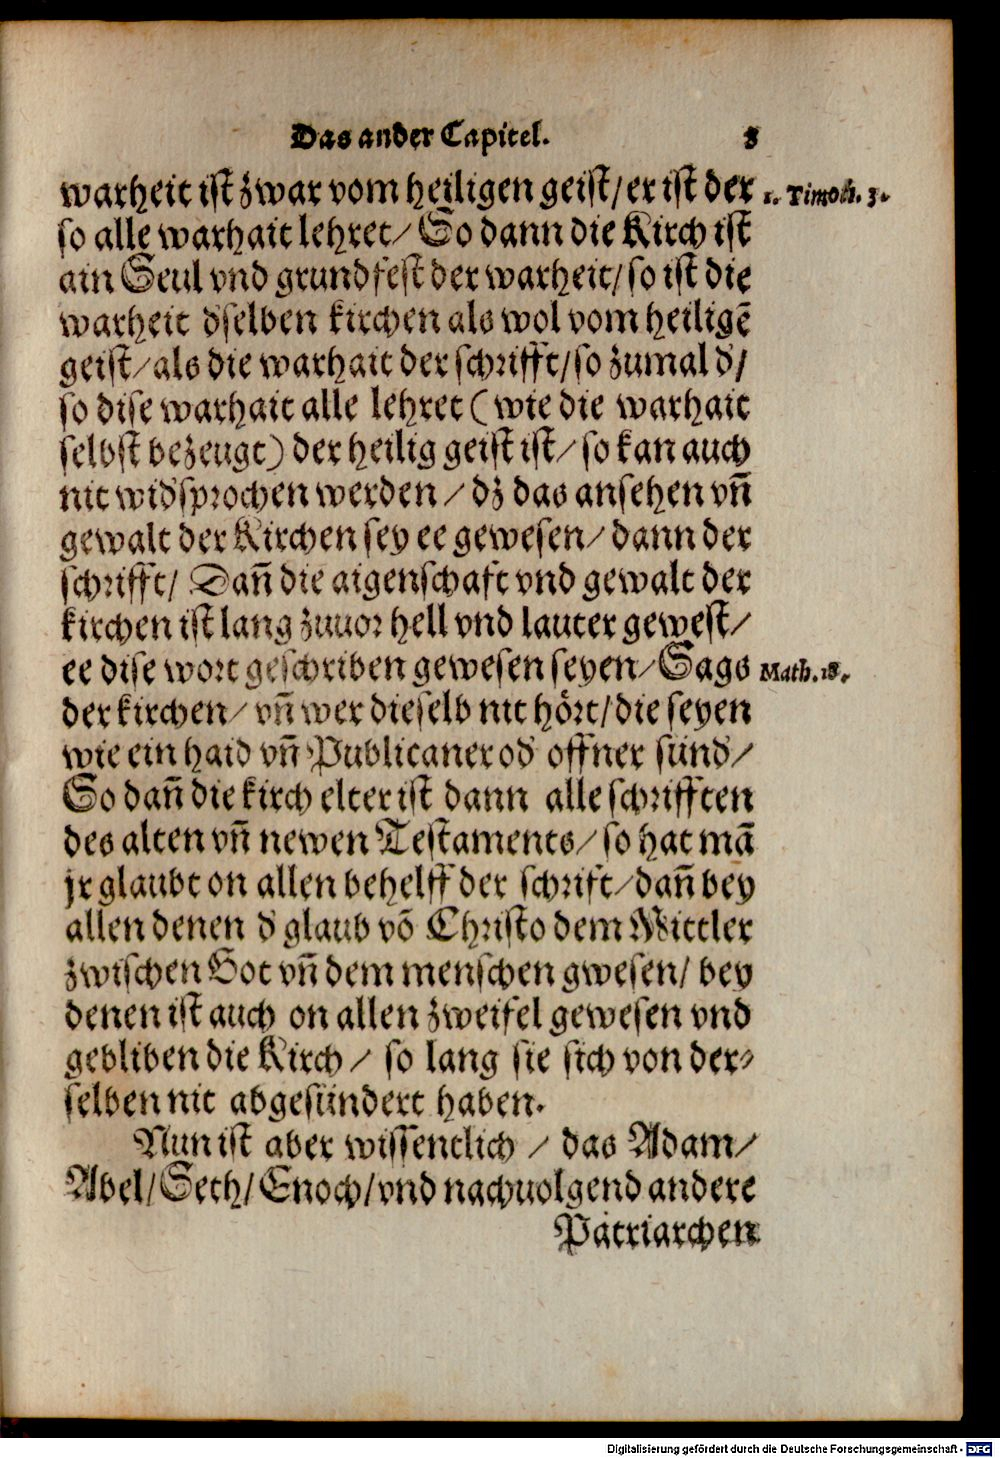 Das ander Capitel. 8
warheit ist zwar vom heiligen geist/ er ist der 1. Timoth. 3.
so alle warhait lehret/ So dann die Kirch ist
ain Seul vnd grundfest der warheit/ so ist die
warheit d'selben kirchen als wol vom heiligē
geist/ als die warhait der schrifft/ so zumal d'/
so dise warhait alle lehret (wie die warhait
selbst bezeugt) der heilig geist ist/ so kan auch
nit wid'sprochen werden/ dz das ansehen vñ
gewalt der Kirchen sey ee gewesen/ dann der
schrifft/ Dañ die aigenschaft vnd gewalt der
kirchen ist lang zuuor hell vnd lauter gewest/
ee dise wort geschriben gewesen seyen/ Sags Math. 18.
der kirchen/ vñ wer dieselb nit hört/ die seyen
wie ein haid vñ Publicaner od' offner sünd'/
So dañ die kirch elter ist dann alle schrifften
des alten vñ newen Testaments/ so hat mā
jr glaubt on allen behelff der schrift/ dañ bey
allen denen d' glaub vō Christo dem Mittler
zwischen Got vñ dem menschen gwesen/ bey
denen ist auch on allen zweifel gewesen vnd
gebliben die Kirch/ so lang sie sich von der⸗
selben nit abgesündert haben.
Nun ist aber wissentlich/ das Adam/
Abel/ Seth/ Enoch/ vnd nachuolgend andere
Patriarchen
Digitalisierung gefördert durch die Deutsche Forschungsgemeinschaft - DFG